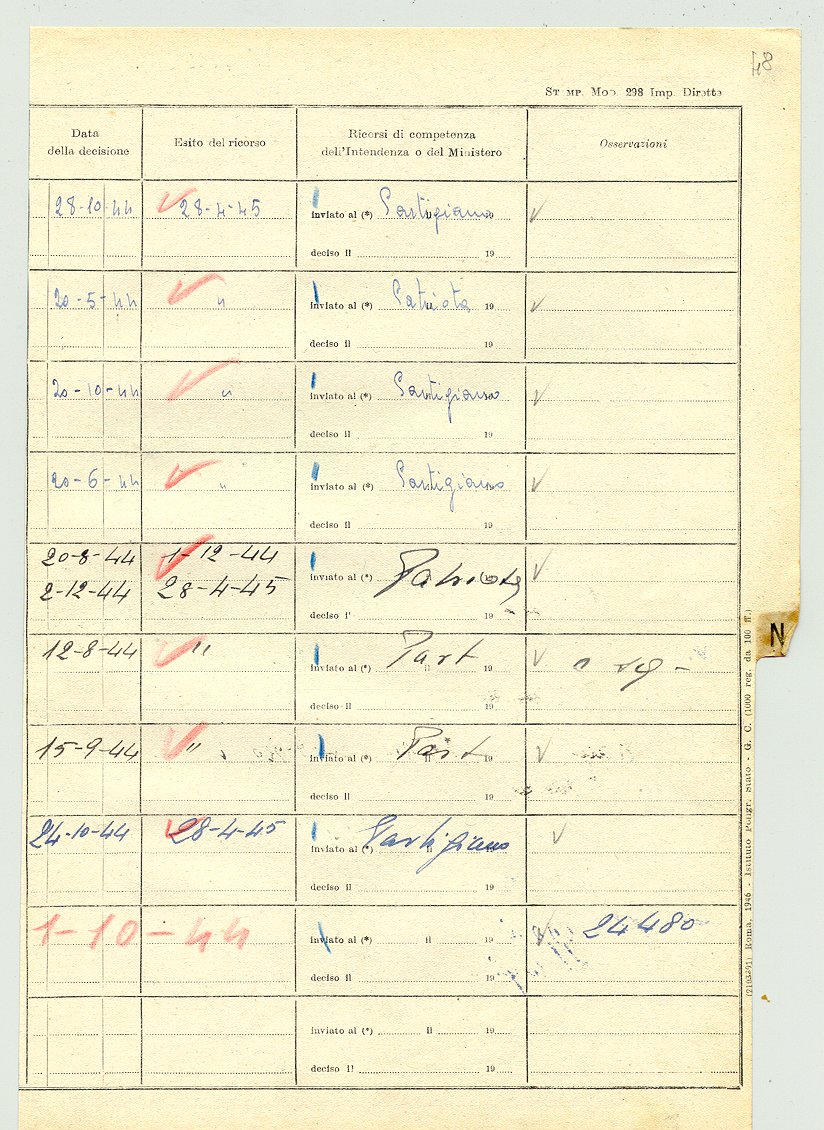 48
Stamp. Mod. 298 Imp. Dirette
Data della decisione
Esito del ricorso
Ricorsi di competenza dell'Intendenza o del Ministero
Osservazioni
28-10-44 28-4-45 inviato al (*) Partigiano il 19
deciso il 19
20-5-44 " inviato al (*) Patriota 19
deciso il 19
20-10-44 " inviato al (*) Partigiano
deciso il 19
20-6-44 " inviato al (*) Partigiano
deciso il 19
20-8-44 1-12-44
2-12-44 28-4-45 inviato al (*) Patriota
deciso il 19
12-8-44 " inviato al (*) Part il 19
deciso il 19
15-9-44 " inviato al (*) Part il 19
deciso il 19
24-10-44 28-4-45 inviato al (*) Partigiano il 19
deciso il 19
1-10-44 inviato al (*) il 19 24480
deciso il 19
inviato al (*) il 19
deciso il 19
N
(2103391) Roma, 1946 - Istituto Poligr. Stato - G. C. (1000 reg. da 100 ff.)